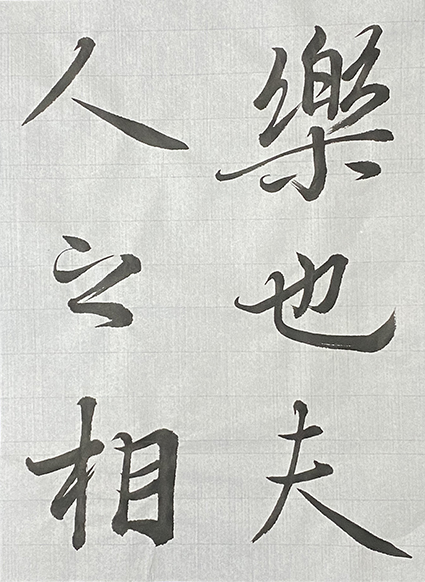 樂也夫
人之相